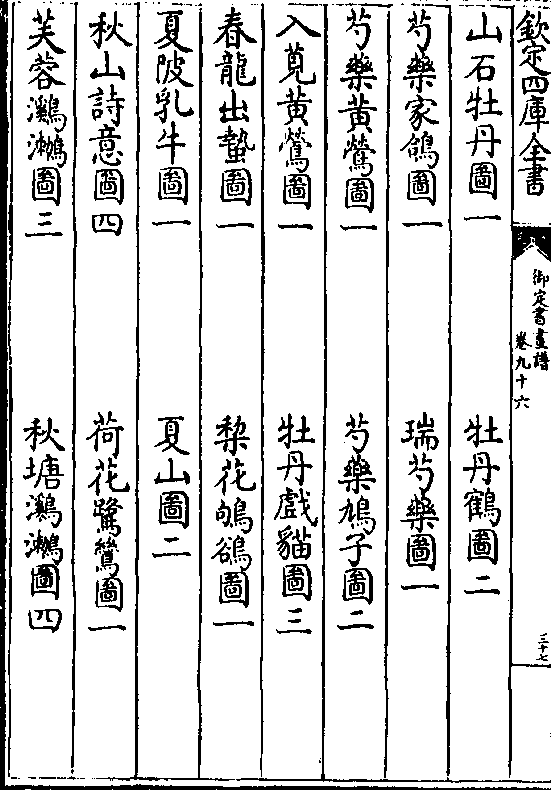 欽定四庫全書
御定書畫譜
卷九十六
三十七
山石牡丹圖一　牡丹鶴圖二
芍藥家鴿圖一　瑞芍藥圖一
芍藥黃鶯圖一　芍藥鳩子圖二
入莧黃鶯圖一　牡丹戲貓圖三
春龍出蟄圖一　梨花鴝鵒圖一
夏陂乳牛圖一　夏山圖二
秋山詩意圖四　荷花鷺鷥圖一
芙蓉鸂鶒圖三　秋塘鸂鶒圖四